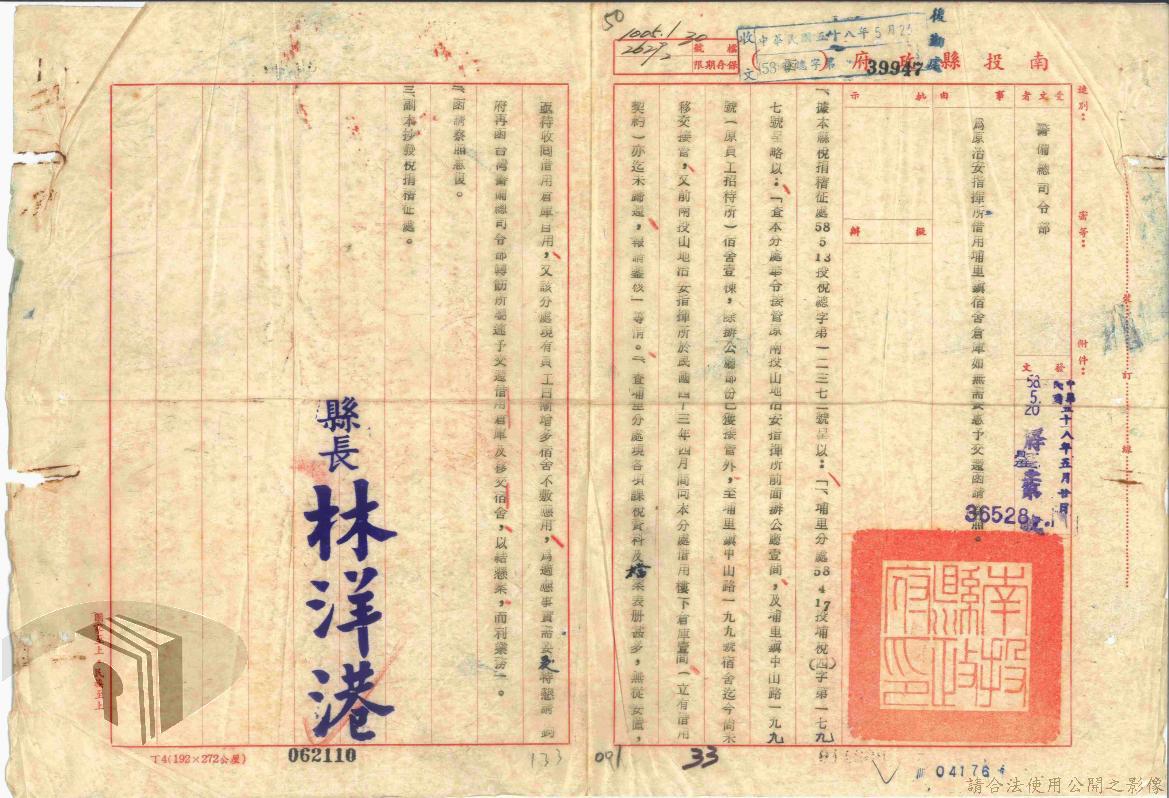 南投縣政府
後勤處
收文
中華民國五十八年5月23
39947
檔號
保存期限
1005.1
30
2629/2
50
速別：
密等：
附件：
受文者
警備總司令部
事由
為原治安指揮所借用埔里鎮宿舍倉庫如無需要惠予交還函請
批示
擬辦
發文
中華民國五十八年五月廿日
58.5.20
36528
號
裝
訂
線
一、據本縣稅捐稽征處58 5 13投稅總字第一二三七二號呈以：「一、埔里分處58 4 17投埔稅(四)字第一七九
七號呈略以：「查本分處奉令接管原南投山地治安指揮所前面辦公廳壹間，及埔里鎮中山路一九九
號（原員工招待所）宿舍壹棟，除辦公廳部份已獲接管外，至埔里鎮中山路一九九號宿舍迄今尚未
移交接管，又前南投山地治安指揮所於民國四十三年四月間向本分處借用樓下倉庫壹間（立有借用
契約）亦迄未歸還，報請鑒核」等情。二、查埔里分處現各項課稅資料及檔案表册甚多，無從安置，
亟待收回借用倉庫自用，又該分處現有員工日漸增多宿舍不敷應用，為適應事實需要，特懇請 鈞
府再函台灣警備總司令部轉飭所屬速予交還借用倉庫及移交宿舍，以結懸案，而利業務」。
二、函請察照惠復。
三、副本抄發稅捐稽征處。
縣長 林洋港
南投縣政府印
國家至上 民族至上
丁4(192×272公厘)
062110
133
091
33
04176
請合法使用公開之影像